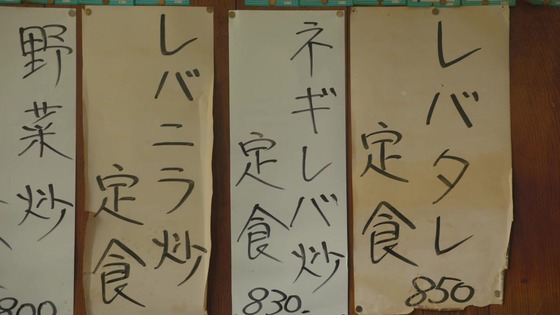 レバタレ
定食
850
ネギレバ炒
定食
830.
レバニラ炒
定食
野菜炒
800